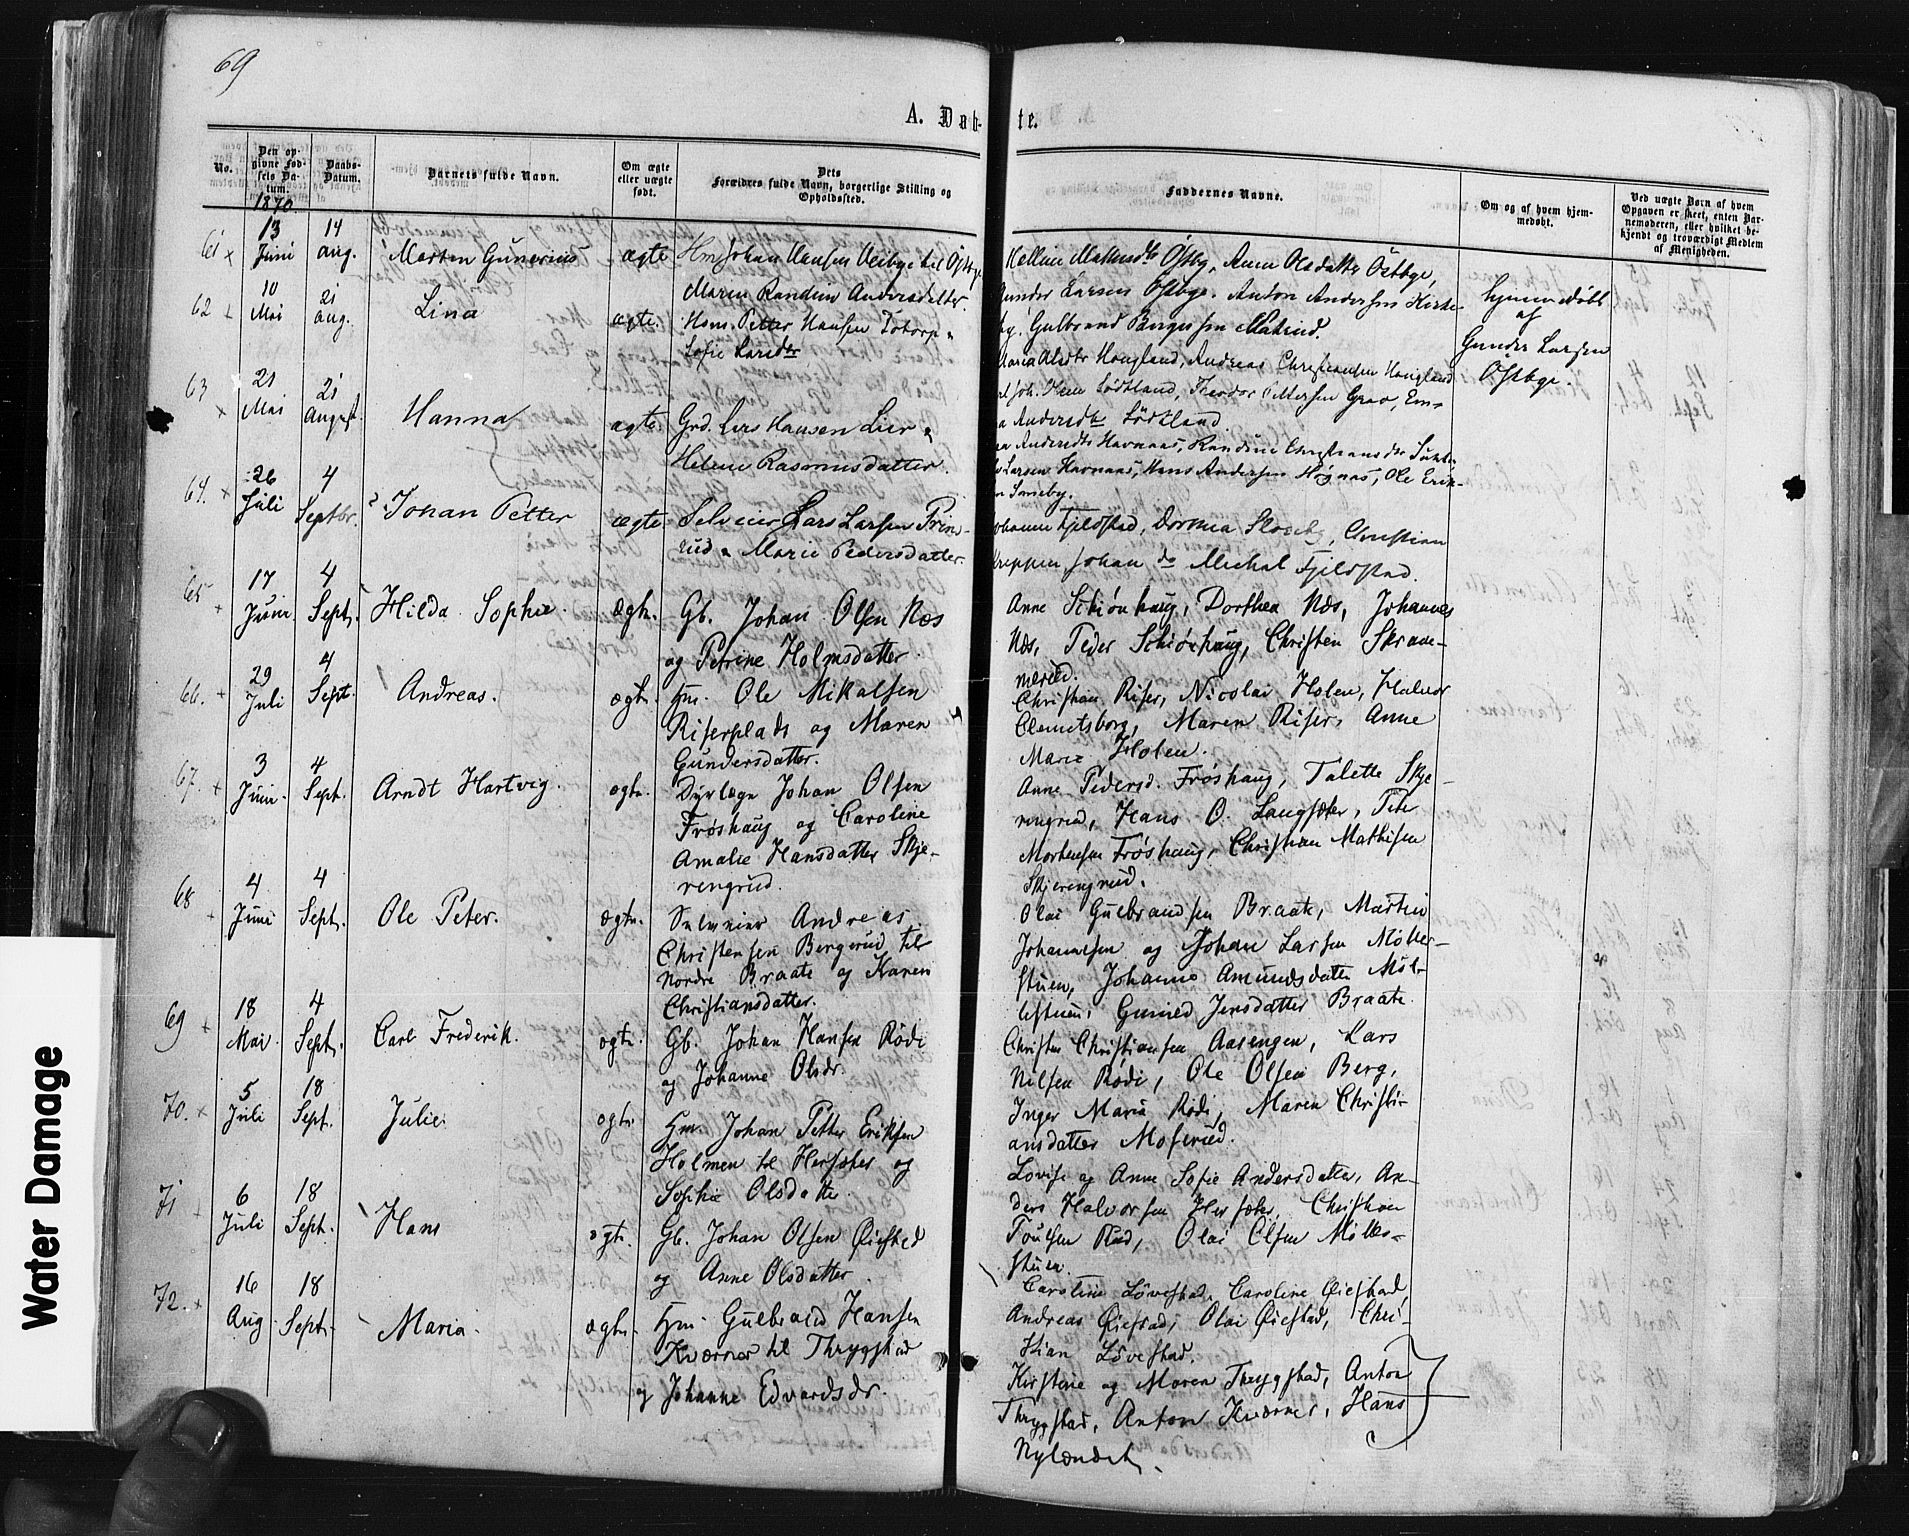 69
A. Døb- te.
No.
Den op-
givne Fød-
sels Da-
tum.
1870.
Daabs-
Datum.
Barnets fulde Navn.
Om ægte
eller uægte
født.
Dets
Forældres fulde Navn, borgerlige Stilling og
Opholdssted.
Faddernes Navne.
Om og af hvem hjem-
medøbt.
Ved uægte Børn af hvem
Opgaven er skeet, enten Bar-
nemoderen, eller hvilket be-
kjendt og troværdigt Medlem
af Menigheden.
61
13 Juni
14 Aug.
Morten Gunerius
ægte
Hm Johan Hansen til Østbye
Maren Randine Andersdatter.
Østby, Anne Olsdatter Østbye,
Gunder Larsen Østbye. Anton Andersen
Gulbrand
hjemmedøbt
af
Gunder Larsen
Østbye.
62
10 Mai
21 Aug.
Lina
ægte.
Hsm. Petter Hansen
Sofie Larsdtr
Haugland, Andreas Christiansen Haugland
Lødtland, Theodor Pettersen Grav, Em-
a Andersdtr Lødtland.
63
21 Mai
21 August.
Hanna
ægte.
Grd. Lars Hansen Lier &
Helene Rasmusdatter.
Andersdtr Havnaas, Randine Christiansdtr
Larsen Havnaas, Hans Andersen Høgnas, Ole Erik-
n Sonsby.
64.
26 Juli
4 Septbr.
Johan Petter
ægte
Selveier Lars Larsen Prins-
rud & Marie Pedersdatter.
Johanne Fjeldstad, Dorthea Christian
Johan do Michal Fjeldstad.
65
17 Juni
4 Sept.
Hilda Sophie.
Ægte.
Gb. Johan Olsen Næs
og Petrine Holmsdatter.
Anne Schiønhaug, Dorthea Næs, Johannes
Næs, Peder Schiønhaug, Christen Skram-
merud.
66.
29 Juli
4 Sept.
Andreas.
ægte.
Hm. Ole Mikalsen
Riserplads og Maren
Gundersdatter.
Christian Riser, Nicolai Holen, Halvor
Clemetsborg, Maren Riser, Anne
Marie Holen.
67.
3 Juni.
4 Sept.
Arndt Hartvig.
ægte.
Dyrlæge Johan Olsen
Frøshaug og Caroline
Amalie Hansdatter Skje-
rengrud.
Anne Pedersd. Frøshaug, Talette Skje-
rengrud, Hans O. Langsæter, Peter
Mortensen Frøshaug, Christian Mathisen
Skjerengrud.
68
4 Juni
4 Sept.
Ole Peter.
ægte.
Selveier Andreas
Christensen Bergerud til
Nordre Braate og Karen
Christiansdatter.
Olai Gulbrandsen Braate, Martin
Johannesen og Johan Larsen Møller-
stuen, Johanne Amundsdatter Møl-
lerstuen, Gunild Jensdatter Braate.
69
18 Mai.
4 Sept.
Carl Frederik.
ægte.
Gb. Johan Hansen Rødi
og Johanne Olsdr.
Christen Christiansen Aasengen, Lars
Nilsen Rødi, Ole Olsen Berg,
Inger Maria Rødi, Maren Christi-
ansdatter Moserud.
70.
5 Juli
18 Sept.
Julie.
ægte.
Hm. Johan Petter Eriksen
Holmen til Hersæter og
Sophie Olsdatter.
Lovise og Anne Sofie Andersdatter, An-
ders Halvorsen Hersæter, Christian
Poulsen Rud, Olai Olsen Møller-
stuen.
71
6 Juli
18 Sept.
Hans
ægte.
Gb. Johan Olsen Øiestad
og Anne Olsdatter.
Caroline Løvestad, Caroline Øiestad,
Andreas Øiestad, Olai Øiestad, Chri-
stian Løvestad.
72.
16 Aug
18 Sept.
Maria.
ægte.
Hm. Gulbrand Hansen
Kværner til Thrygstad
og Johanne Edvardsdr.
Kirstine og Maren Thrygstad, Anton
Thrygstad, Anton Kværner, Hans
Nylændet.
Water Damage